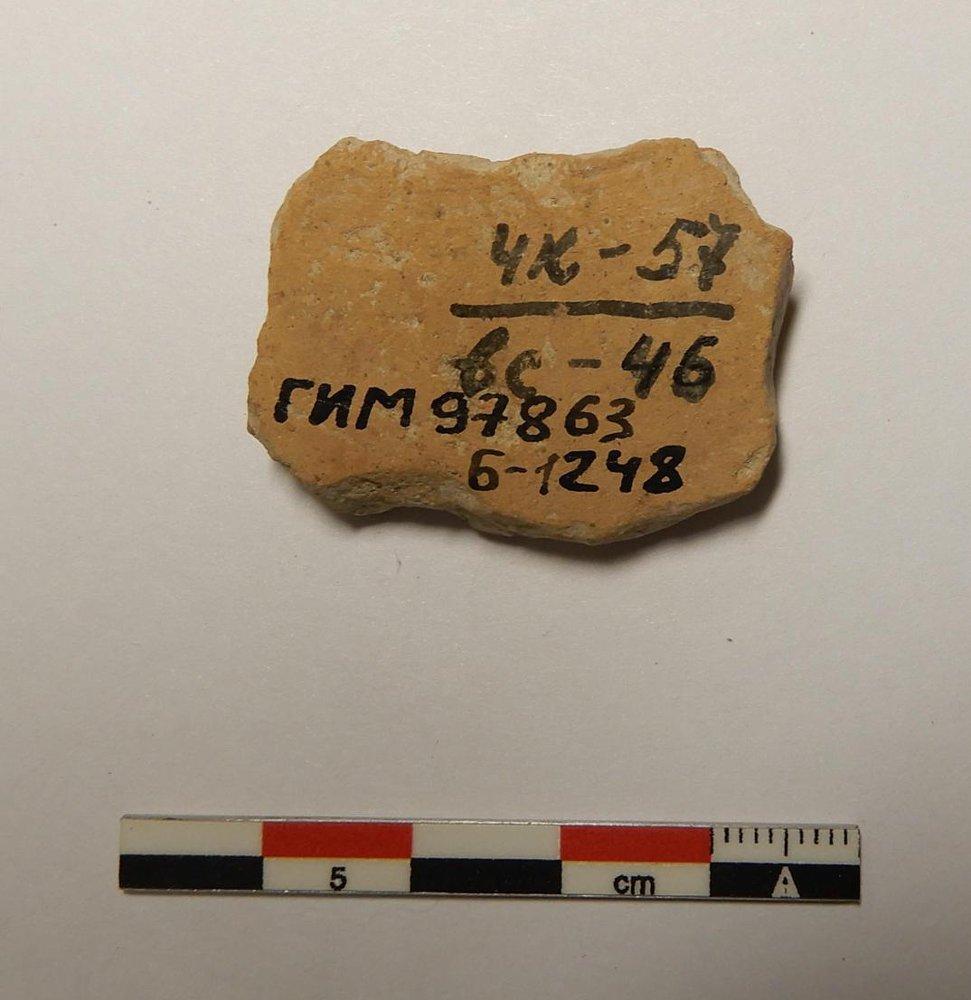 ЧК-57
вс-46
ГИМ 97863
Б-1248
5 cm A